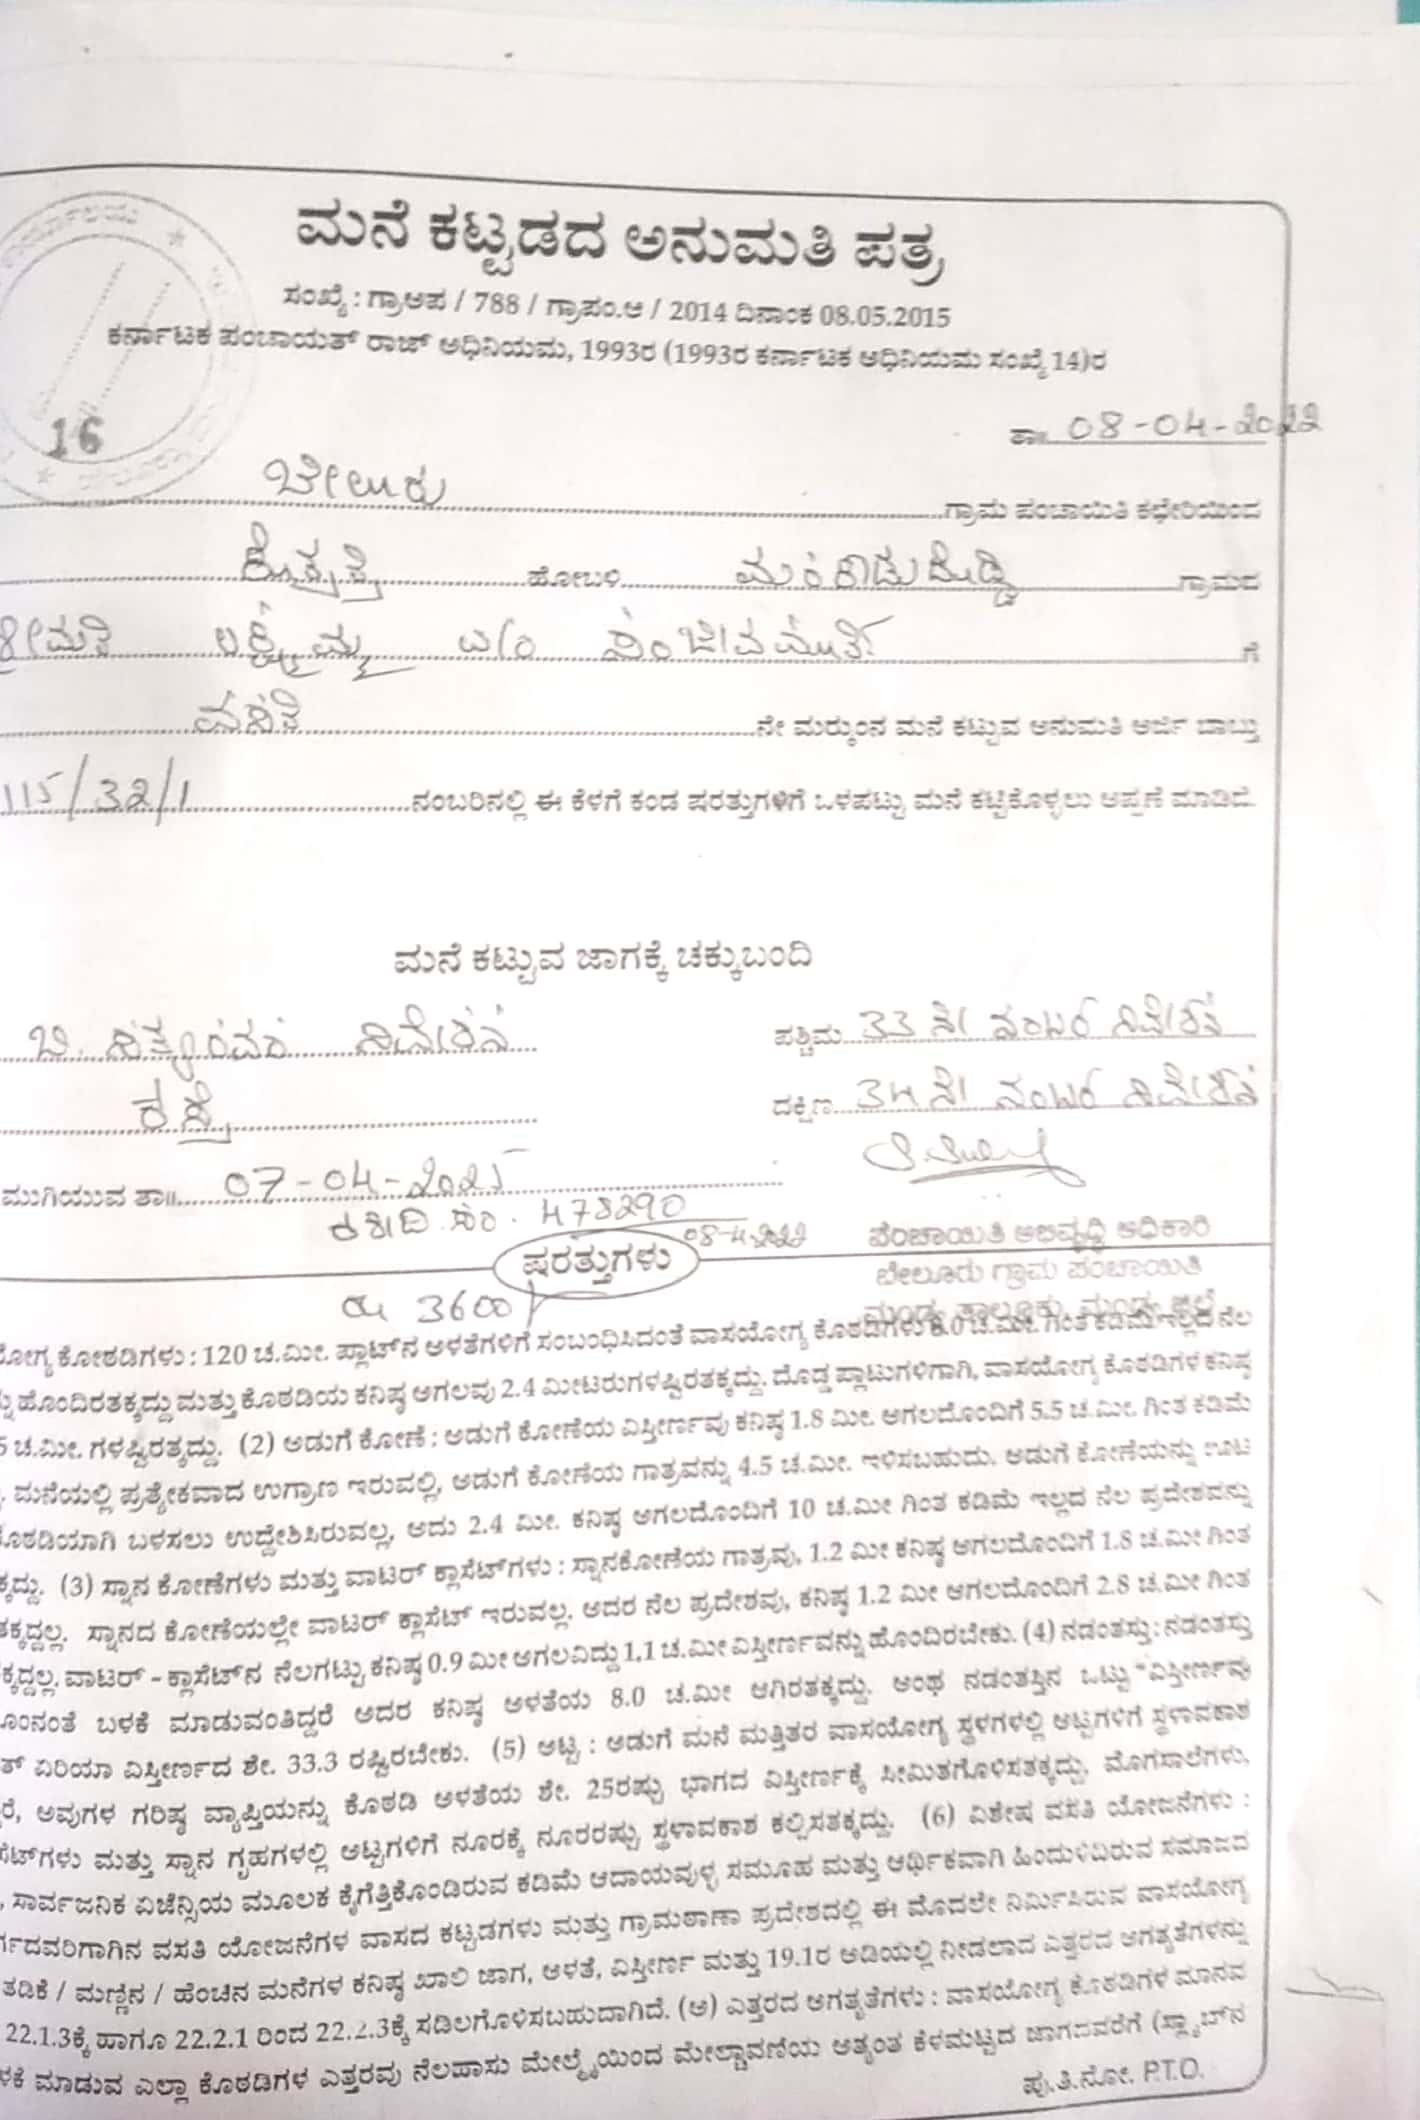 ಮನೆ ಕಟ್ಟಡದ ಅನುಮತಿ ಪತ್ರ
ಸಂಖ್ಯೆ : ಗ್ರಾಅಪ / 788 / ಗ್ರಾಪಂ.ಆ / 2014 ದಿನಾಂಕ 08.05.2015
ಕರ್ನಾಟಕ ಪಂಚಾಯತ್ ರಾಜ್ ಅಧಿನಿಯಮ, 1993ರ (1993ರ ಕರ್ನಾಟಕ ಅಧಿನಿಯಮ ಸಂಖ್ಯೆ 14)ರ
16
ತಾ॥ 08-04-2022
ಬೇಲುರು ಗ್ರಾಮ ಪಂಚಾಯಿತಿ ಕಛೇರಿಯಿಂದ
ಹೋಬಳಿ ಗ್ರಾಮದ
ಲಕ್ಷ್ಮಮ್ಮ ಗೆ
ವಸತಿ ನೇ ಮರ್‍ಕುಂನ ಮನೆ ಕಟ್ಟುವ ಅನುಮತಿ ಅರ್ಜಿ ಬಾಬ್ತು
115/32/1 ನಂಬರಿನಲ್ಲಿ ಈ ಕೆಳಗೆ ಕಂಡ ಷರತ್ತುಗಳಿಗೆ ಒಳಪಟ್ಟು ಮನೆ ಕಟ್ಟಿಕೊಳ್ಳಲು ಅಪ್ಪಣೆ ಮಾಡಿದೆ.
ಮನೆ ಕಟ್ಟುವ ಜಾಗಕ್ಕೆ ಚಕ್ಕುಬಂದಿ
ಬಿ. ನಿವೇಶನ ಪಶ್ಚಿಮ 33 ನೇ ನಂಬರ್ ನಿವೇಶನ
ರಸ್ತೆ ದಕ್ಷಿಣ 34ನೇ ನಂಬರ್ ನಿವೇಶನ
ಮುಗಿಯುವ ತಾ॥ 07-04-2025
ರಶೀದಿ ಸಂ. 478290
08-4-2022
ಪಂಚಾಯಿತಿ ಅಭಿವೃದ್ಧಿ ಅಧಿಕಾರಿ
ಷರತ್ತುಗಳು
ಬೇಲೂರು ಗ್ರಾಮ ಪಂಚಾಯಿತಿ
3600/
ಮಂಡ್ಯ ತಾಲ್ಲೂಕು, ಮಂಡ್ಯ ಜಿಲ್ಲೆ
ಕೋಠಡಿಗಳು : 120 ಚ.ಮೀ. ಪ್ಲಾಟ್‌ನ ಅಳತೆಗಳಿಗೆ ಸಂಬಂಧಿಸಿದಂತೆ ವಾಸಯೋಗ್ಯ ಕೊಠಡಿಗಳು 8.0 ಚ.ಮೀ. ಗಿಂತ ಕಡಿಮೆ ಇಲ್ಲದ ನೆಲ
ಹೊಂದಿರತಕ್ಕದ್ದು ಮತ್ತು ಕೊಠಡಿಯ ಕನಿಷ್ಠ ಅಗಲವು 2.4 ಮೀಟರುಗಳಷ್ಟಿರತಕ್ಕದ್ದು. ದೊಡ್ಡ ಪ್ಲಾಟುಗಳಿಗಾಗಿ, ವಾಸಯೋಗ್ಯ ಕೊಠಡಿಗಳ ಕನಿಷ್ಠ
5 ಚ.ಮೀ. ಗಳಷ್ಟಿರತ್ಕದ್ದು. (2) ಅಡುಗೆ ಕೋಣೆ : ಅಡುಗೆ ಕೋಣೆಯ ವಿಸ್ತೀರ್ಣವು ಕನಿಷ್ಠ 1.8 ಮೀ. ಅಗಲದೊಂದಿಗೆ 5.5 ಚ.ಮೀ. ಗಿಂತ ಕಡಿಮೆ
ಮನೆಯಲ್ಲಿ ಪ್ರತ್ಯೇಕವಾದ ಉಗ್ರಾಣ ಇರುವಲ್ಲಿ, ಅಡುಗೆ ಕೋಣೆಯ ಗಾತ್ರವನ್ನು 4.5 ಚ.ಮೀ. ಇಳಿಸಬಹುದು. ಅಡುಗೆ ಕೋಣೆಯನ್ನು ಊಟ
ಕೊಠಡಿಯಾಗಿ ಬಳಸಲು ಉದ್ದೇಶಿಸಿರುವಲ್ಲ, ಅದು 2.4 ಮೀ. ಕನಿಷ್ಠ ಅಗಲದೊಂದಿಗೆ 10 ಚ.ಮೀ ಗಿಂತ ಕಡಿಮೆ ಇಲ್ಲದ ನೆಲ ಪ್ರದೇಶವನ್ನು
(3) ಸ್ನಾನ ಕೋಣೆಗಳು ಮತ್ತು ವಾಟರ್ ಕ್ಲಾಸೆಟ್‌ಗಳು : ಸ್ನಾನಕೋಣೆಯ ಗಾತ್ರವು, 1.2 ಮೀ ಕನಿಷ್ಠ ಅಗಲದೊಂದಿಗೆ 1.8 ಚ.ಮೀ ಗಿಂತ
ಸ್ನಾನದ ಕೋಣೆಯಲ್ಲೇ ವಾಟರ್ ಕ್ಲಾಸೆಟ್ ಇರುವಲ್ಲ, ಅದರ ನೆಲ ಪ್ರದೇಶವು, ಕನಿಷ್ಠ 1.2 ಮೀ ಅಗಲದೊಂದಿಗೆ 2.8 ಚ.ಮೀ ಗಿಂತ
ವಾಟರ್ - ಕ್ಲಾಸೆಟ್‌ನ ನೆಲಗಟ್ಟು ಕನಿಷ್ಠ 0.9 ಮೀ ಅಗಲವಿದ್ದು 1.1 ಚ.ಮೀ ವಿಸ್ತೀರ್ಣವನ್ನು ಹೊಂದಿರಬೇಕು. (4) ನಡಂತಸ್ತು : ನಡಂತಸ್ತು
ಬಳಕೆ ಮಾಡುವಂತಿದ್ದರೆ ಅದರ ಕನಿಷ್ಠ ಅಳತೆಯ 8.0 ಚ.ಮೀ ಆಗಿರತಕ್ಕದ್ದು. ಅಂಥ ನಡಂತಸ್ತಿನ ಒಟ್ಟು ವಿಸ್ತೀರ್ಣವು
ಏರಿಯಾ ವಿಸ್ತೀರ್ಣದ ಶೇ. 33.3 ರಷ್ಟಿರಬೇಕು. (5) ಅಟ್ಟ : ಅಡುಗೆ ಮನೆ ಮತ್ತಿತರ ವಾಸಯೋಗ್ಯ ಸ್ಥಳಗಳಲ್ಲಿ ಅಟ್ಟಗಳಿಗೆ ಸ್ಥಳಾವಕಾಶ
ಅವುಗಳ ಗರಿಷ್ಠ ವ್ಯಾಪ್ತಿಯನ್ನು ಕೊಠಡಿ ಅಳತೆಯ ಶೇ. 25ರಷ್ಟು ಭಾಗದ ವಿಸ್ತೀರ್ಣಕ್ಕೆ ಸೀಮಿತಗೊಳಿಸತಕ್ಕದ್ದು. ಮೊಗಸಾಲೆಗಳು,
ಮತ್ತು ಸ್ನಾನ ಗೃಹಗಳಲ್ಲಿ ಅಟ್ಟಗಳಿಗೆ ನೂರಕ್ಕೆ ನೂರರಷ್ಟು ಸ್ಥಳಾವಕಾಶ ಕಲ್ಪಿಸತಕ್ಕದ್ದು. (6) ವಿಶೇಷ ವಸತಿ ಯೋಜನೆಗಳು :
ಸಾರ್ವಜನಿಕ ಏಜೆನ್ಸಿಯ ಮೂಲಕ ಕೈಗೆತ್ತಿಕೊಂಡಿರುವ ಕಡಿಮೆ ಆದಾಯವುಳ್ಳ ಸಮೂಹ ಮತ್ತು ಆರ್ಥಿಕವಾಗಿ ಹಿಂದುಳಿದಿರುವ ಸಮಾಜದ
ವಸತಿ ಯೋಜನೆಗಳ ವಾಸದ ಕಟ್ಟಡಗಳು ಮತ್ತು ಗ್ರಾಮಠಾಣಾ ಪ್ರದೇಶದಲ್ಲಿ ಈ ಮೊದಲೇ ನಿರ್ಮಿಸಿರುವ ವಾಸಯೋಗ್ಯ
ತಡಿಕೆ / ಮಣ್ಣಿನ / ಹೆಂಚಿನ ಮನೆಗಳ ಕನಿಷ್ಠ ಖಾಲಿ ಜಾಗ, ಅಳತೆ, ವಿಸ್ತೀರ್ಣ ಮತ್ತು 19.1ರ ಅಡಿಯಲ್ಲಿ ನೀಡಲಾದ ಎತ್ತರದ ಅಗತ್ಯತೆಗಳನ್ನು
22.1.3ಕ್ಕೆ ಹಾಗೂ 22.2.1 ರಿಂದ 22.2.3ಕ್ಕೆ ಸಡಿಲಗೊಳಿಸಬಹುದಾಗಿದೆ. (ಅ) ಎತ್ತರದ ಅಗತ್ಯತೆಗಳು : ವಾಸಯೋಗ್ಯ ಕೊಠಡಿಗಳ ಮಾನವ
ಮಾಡುವ ಎಲ್ಲಾ ಕೊಠಡಿಗಳ ಎತ್ತರವು ನೆಲಹಾಸು ಮೇಲ್ಮೈಯಿಂದ ಮೇಲ್ಚಾವಣಿಯ ಅತ್ಯಂತ ಕೆಳಮಟ್ಟದ ಜಾಗದವರೆಗೆ (ಸ್ಲ್ಯಾಬ್‌ನ
ಪು.ತಿ.ನೋ. P.T.O.